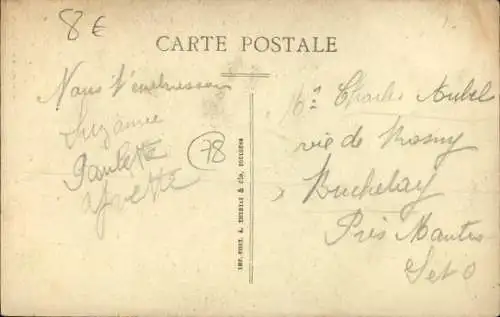 8 €
CARTE POSTALE
Nous t'embrassons
Suzanne
Paulette
Yvette
78
Mr Charles Aubel
rue de Rosny
Buchelay
Près Mantes
S et O
IMP. PHOT. A. THIRIAT & Cie, TOULOUSE